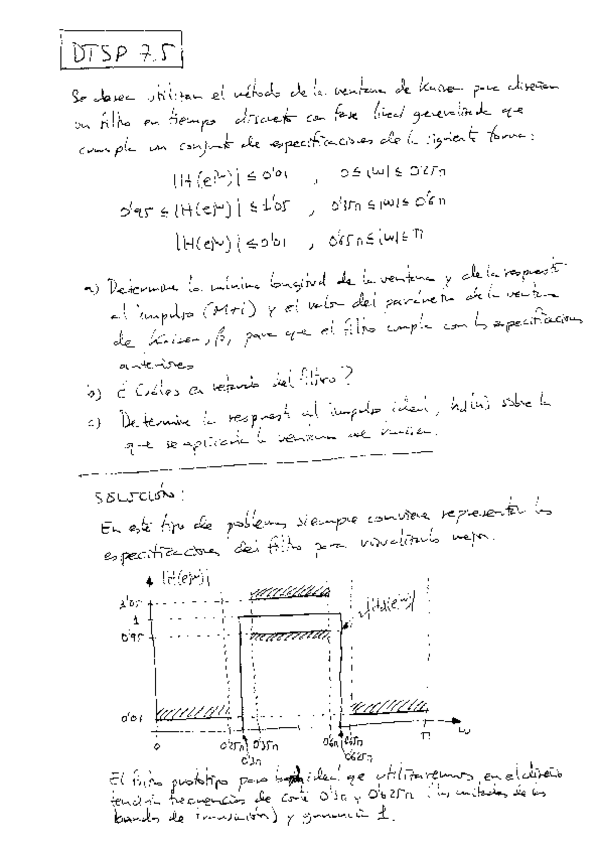 DTSP 7.5
Se desea utilizar el método de la ventana de Kaiser para diseñar
un filtro en tiempo discreto con fase lineal generalizada que
cumpla un conjunto de especificaciones de la siguiente forma:
|H(e^jω)| ≤ 0'01 , 0 ≤ |ω| ≤ 0'25π
0'95 ≤ |H(e^jω)| ≤ 1'05 , 0'35π ≤ |ω| ≤ 0'6π
|H(e^jω)| ≤ 0'01 , 0'65π ≤ |ω| ≤ π
a) Determine la mínima longitud de la ventana y de la respuesta
al impulso (M+1) y el valor del parámetro de la ventana
de Kaiser, β, para que el filtro cumpla con las especificaciones
anteriores
b) ¿Cuál es el retardo del filtro?
c) Determine la respuesta al impulso ideal, hd[n] sobre la
que se aplicaría la ventana de Kaiser.
SOLUCIÓN:
En este tipo de problemas siempre conviene representar las
especificaciones del filtro para visualizarlo mejor.
|H(e^jω)|
1'05
1
0'95
|Hd(e^jω)|
0'01
0 0'25π 0'35π 0'6π 0'65π π ω
0'3π 0'625π
El filtro prototipo paso ideal que utilizaremos en el diseño
tendrá frecuencias de corte 0'3π y 0'625π (las mitades de las
bandas de transición) y ganancia 1.